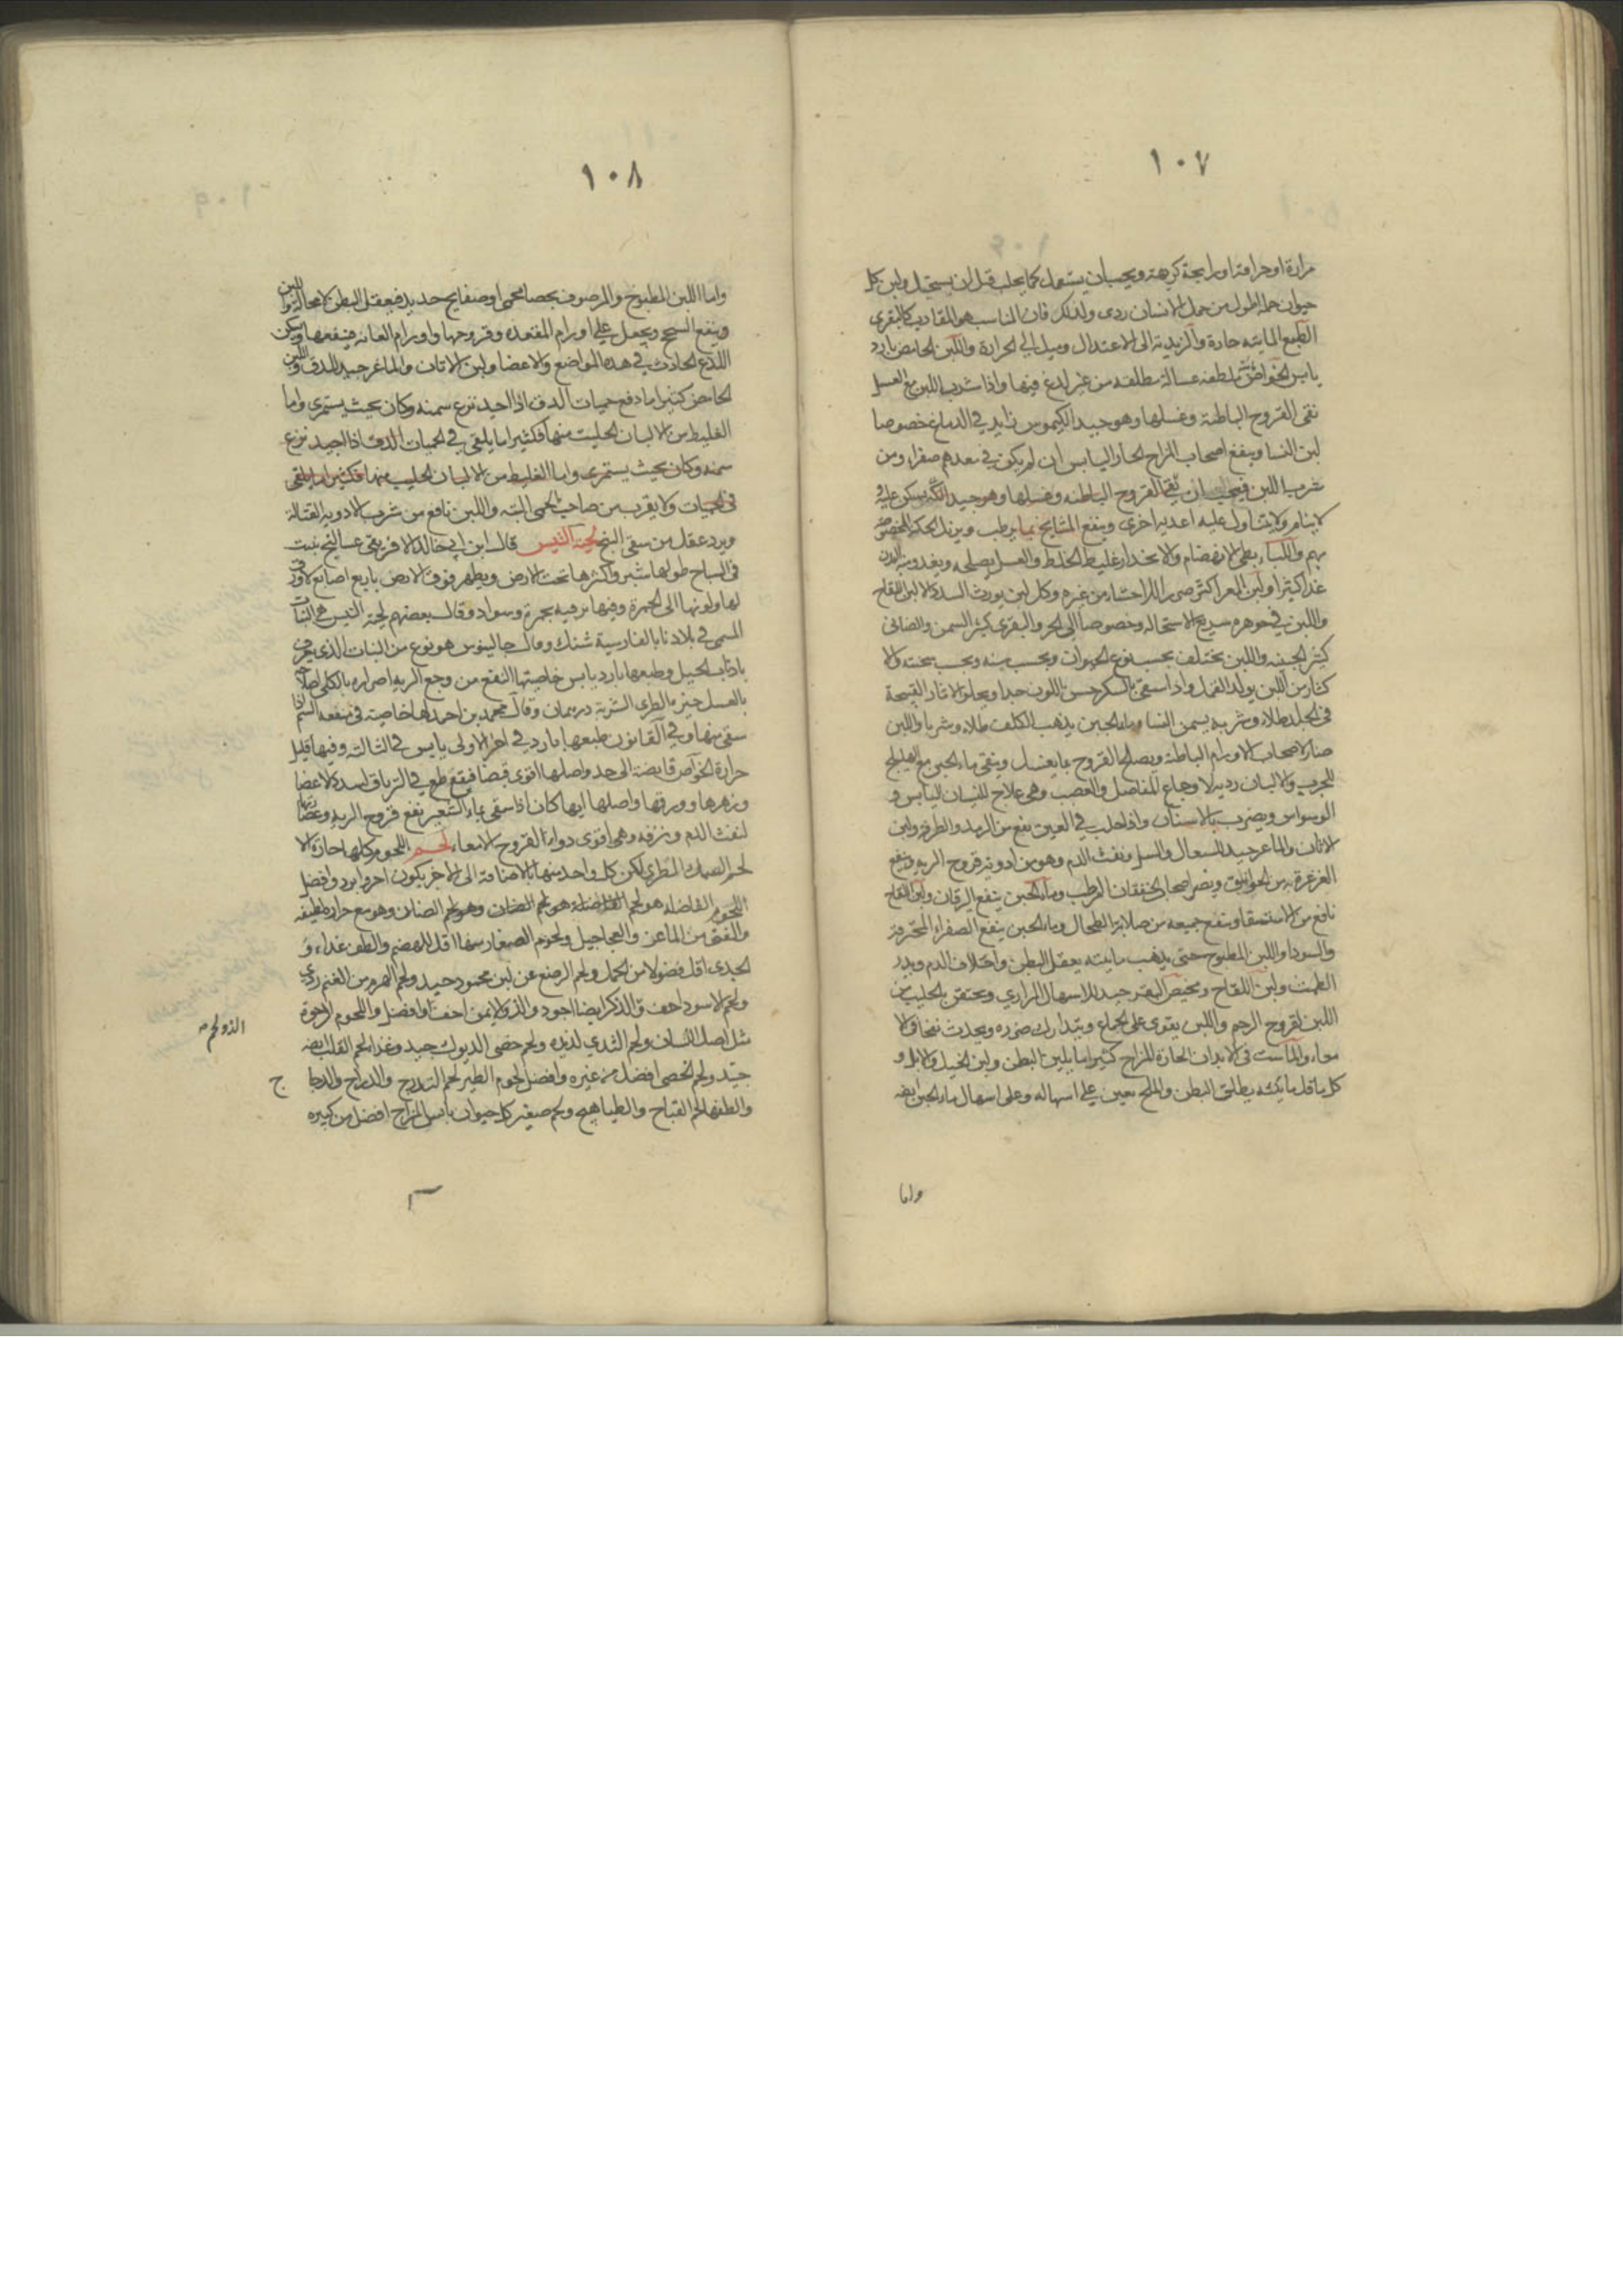 ١٠٧
مرارة او حرافة او رايحة كريهة ويجب ان يستعمل كما يحلب قبل ان يستحيل ولبن كل
حيوان حمله اطول من حمل الانسان ردى ولذلك فان المناسب هو المقارب كالبقرى
الطبع المايته حارة والزبدية الى الاعتدال وميل الى الحرارة واللبن الحامض بارد
يابس الخواص ملطفة غسالة مطلقه من غير لدغ فيها واذا شرب اللبن مع العسل
نقى القروح الباطنة وغسلها وهو جيد الكيموس زايد في الدماغ خصوصا
لبن النسا وينفع اصحاب المزاج الحار اليابس ان لم يكن في معدهم صفراء ومن
شرب اللبن فيجب ان نقى القروح الباطنه وغسلها وهو جيد يسكن عليه و
لا ينام ولا يتناول عليه اغديه اخرى وينفع المشايخ بما يرطب ويزيل الحكة
بهم واللباء بطى الانهضام والانحدار غليظ الخلط والعسل يصلحه ويغدو منه البدن
غدا كثيرا ولبن المعز اكثر ضررا للاحشاء من غيره وكل لبن يورث السدد الا لبن اللقاح
واللبن في جوهره سريع الاستحاله وخصوصا الى الحر والبقرى كثير السمن والضانى
كثير الجبنيه واللبن يختلف بحسب نوع الحيوان وبحسب سنه وبحسب سحنته والا
كثار من اللبن يولد القمل واذا سقى بالسكر حسن اللون جدا ويجلو الاثار القبيحة
في الجلد طلاء وشربه يسمن النسا وماء الجبن يذهب الكلف طلاء وشربا واللبن
ضار لاصحاب الاورام الباطنة ويصلح القروح بما يغسل وينقى ماء الجبن مع الهليلج
للجرب والالبان رديه لاوجاع المفاصل والعصب وهى علاج للنسيان اليابس و
الوسواس ويضرب بالاسنان واذا حلب في العين نفع من الرمد والطرفه ولبن
الاتان والماعز جيد للسعال والسل ونفث الدم وهو من ادوية قروح الريه وينفع
الغرغرة به من الخوانيق ويضر اصحاب الخفقان الرطب وماء الجبن ينفع اليرقان ولبن اللقاح
نافع من الاستسقا وينفع جميعه من صلابة الطحال وماء الجبن ينفع الصفراء المحترقة
والسودا واللبن المطبوخ حتى يذهب مايته يعقل البطن واختلاف الدم ويدر
الطمث ولبن اللقاح ومخيض البقر جيد للاسهال المرارى ويحتقن بالحليب من
اللبن لقروح الرحم واللبن يقوى على الجماع ويتدارك ضرره ويحدث نفخا في الا
معاء والماست في الابدان الحارة المزاج كثيرا ما يلين البطن ولبن الخيل والابل و
كل ما قل مائيته يطلق البطن والملح معين على اسهاله وعلى اسهال ماء الجبن ايضه
واما
١٠٨
واما اللبن المطبوخ والمرصوف بحصا محمى او صفايح حديد فيعقل البطن لا محاله
وينفع السحج ويجعل على اورام المقعده وقروحها واورام العانه فينفعها ويسكن
اللذع الحادث في هذه المواضع والاعضا ولبن الاتان والماعز جيد للدق واللبن
الحامض كثيرا ما دفع حميات الدق اذا اجيد نزع سمنه وكان بحيث يستمرى واما
الغليظ من الالبان الحليب منها فكثيرا ما يلقى في الحميات الدق اذا اجيد نزع
سمنه وكان بحيث يستمرى واما الغليظ من الالبان الحليب منها فكثيرا ما يلقى
في الحميات ولا يقرب من صاحب الحمى البته واللبن نافع من شرب الادويه القتالة
ويرد عقل من سقى البنج لحية التيس قال ابن ابي خالد الافريقى عساليج تنبت
في السباخ طولها شبر واكثرها تحت الارض ويظهر فوق الارض باربع اصابع لا ورق
لها ولونها الى الحمرة وفيها بحمرة وسواد وقال بعضهم لحية التيس هى النبات
المسمى في بلادنا بالفارسية شنك وقال جالينوس هو نوع من النبات الذى يعرف
باذناب الخيل وطبعها بارد يابس خاصيتها النفع من وجع الريه اضراره بالكلى اصلاحه
بالعسل الشربة درهمان وقال محمد بن احمد لها خاصية في منفعه السم اذا
سقى منها وفي القانون طبعها بارد في اخر الاولى يابس في الثالثه وفيها قليل
حرارة الخواص قابضة الى حد واصلها اقوى قبضا فيقع في الترياق لسدد الاعضا
وزهرها وورقها واصلها ايها كان اذا سقى بماء الشعير نفع قروح الريه
لنفث الدم ونزفه وهى اقوى دواء لقروح الامعاء لحم اللحوم كلها حارة الا
لحم السمك الطرى لكن كل واحد منها بالاضافة الى الاخر يكون احر وابرد وافضل
اللحوم الفاضله هو لحم الضان وهو لحم الضان وهو مع حرارة لطيفه
والفتى من الماعز والعجاجيل ولحوم الصغار منها اقل للهضم والطف غداء و
الجدى اقل فضولا من الحمل ولحم الرضع عن لبن محمود جيد ولحم الهرم من الغنم ردى
ولحم الاسود اخف والذكر ايضا اجود والذ والايمن اخف وافضل واللحوم الرخوة
مثل اصل اللسان ولحم الثدى لذيذه ولحم خصى الديوك جيد وغذا لحم القلب ايضه
جيد ولحم الخصى افضل من غيره وافضل لحوم الطير لحم التدرج والدراج والدجا
ج
والطفها لحم القباج والطياهيج ولحم صغير كل حيوان يابس المزاج افضل من كبيره